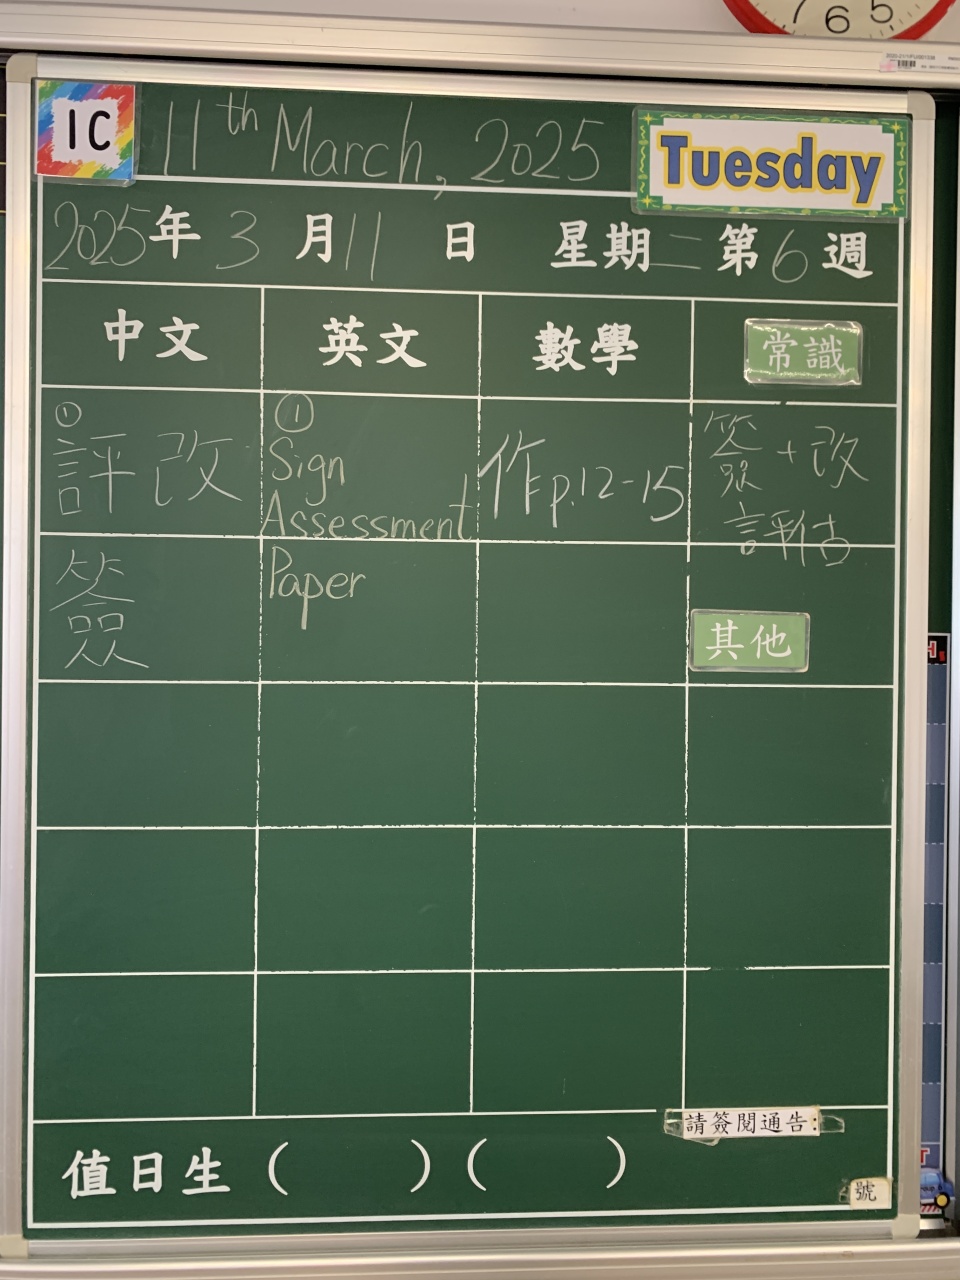 7 6 5
1C 11th March, 2025 Tuesday
2025年3月11日 星期二 第6週
中文 英文 數學 常識
① 評改
簽
① Sign
Assessment
Paper
作p.12-15
簽+改
評估
其他
請簽閱通告:
值日生 ( ) ( )
號